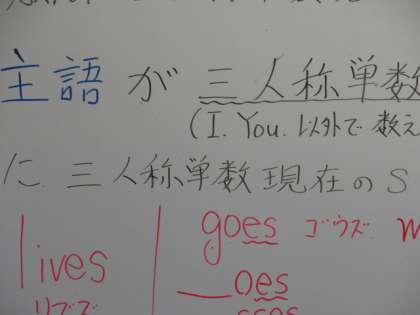 主語 が 三人称単数
(I. You. 以外で 数え
に 三人称単数現在の S
lives
リブズ
goes ゴウズ
oes